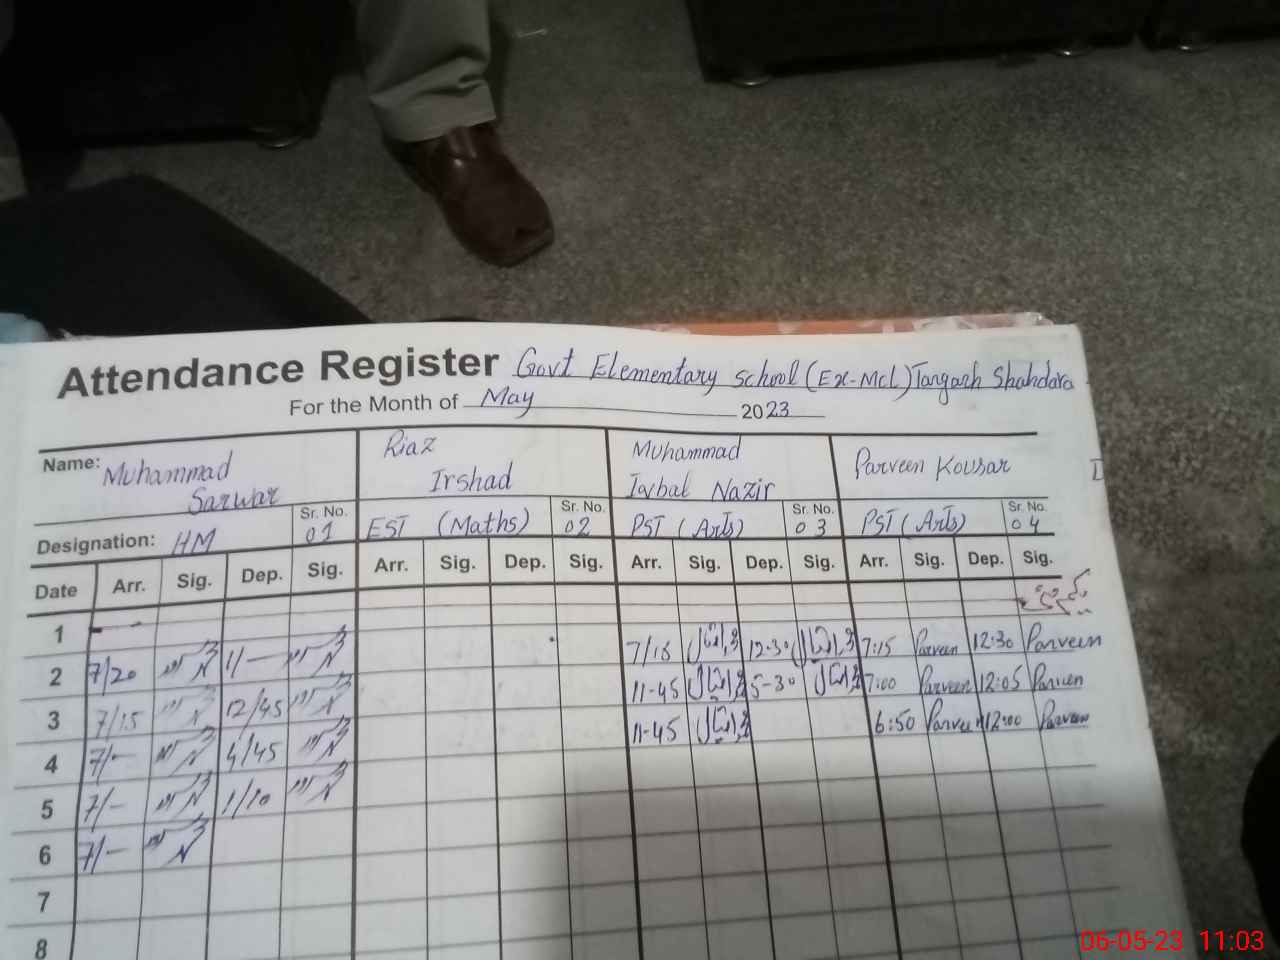 Attendance Register Govt Elementary school (Ex-Mcl) Targarh Shahdara
For the Month of May 2023
Name: Muhammad Sarwar Riaz Irshad Muhammad Iqbal Nazir Parveen Kousar
Designation: HM Sr. No. 01 EST (Maths) Sr. No. 02 PST (Arts) Sr. No. 03 PST (Arts) Sr. No. 04
Date Arr. Sig. Dep. Sig. Arr. Sig. Dep. Sig. Arr. Sig. Dep. Sig. Arr. Sig. Dep. Sig.
1
2 7/20 1/— 7/18 12-30 7:15 Parveen 12:30 Parveen
3 7/15 12/45 11-45 5-30 7:00 Parveen 12:05 Parveen
4 7/- 4/45 11-45 6:50 Parveen 12:00 Parveen
5 7/- 1/10
6 7/-
7
8
06-05-23 11:03